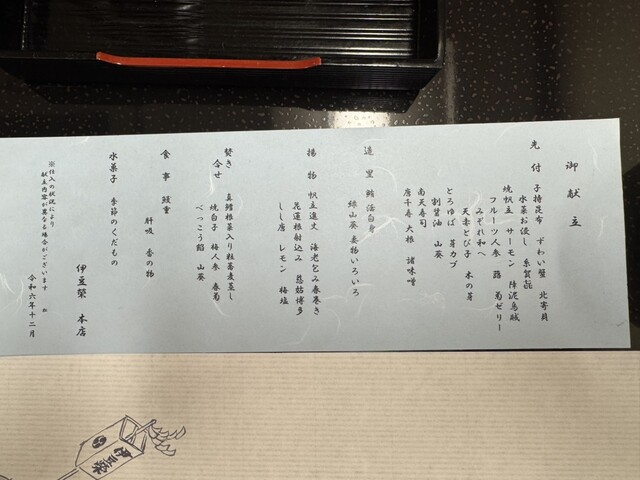 御献立
先付 子持昆布 ずわい蟹 北寄貝
水菜お浸し 糸賀喜
焼帆立 サーモン 障泥烏賊
フルーツ人参 蕗 菊ゼリー
みぞれ和へ
天赤とび子 木の芽
とろゆば 芽カブ
割醤油 山葵
南天寿司
唐千寿 大根 諸味噌
造里 鮪 活白身
緑山葵 妻物いろいろ
揚物 帆立進丈 海老包み春巻き
花蓮根射込み 慈姑博多
しし唐 レモン 梅塩
焚き合せ 真鱈根菜入り粒蕎麦蒸し
焼白子 梅人参 春菊
べっこう餡 山葵
食事 鰻重
肝吸 香の物
水菓子 季節のくだもの
伊豆榮 本店
※仕入の状況により
献立内容が異なる場合がございます
令和六年十二月
伊豆榮